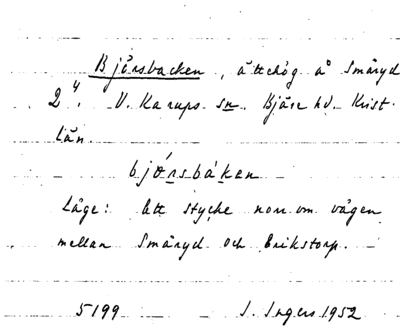 Bjärsbacken, ättehög å Smäryd
2⁴. V. Karups sn. Bjäre hd. Krist.
län.
bjǿrsbáken
Läge: Ett stycke norr om vägen
mellan Smäryd och Erikstorp. –
5199 I. Ingers 1952